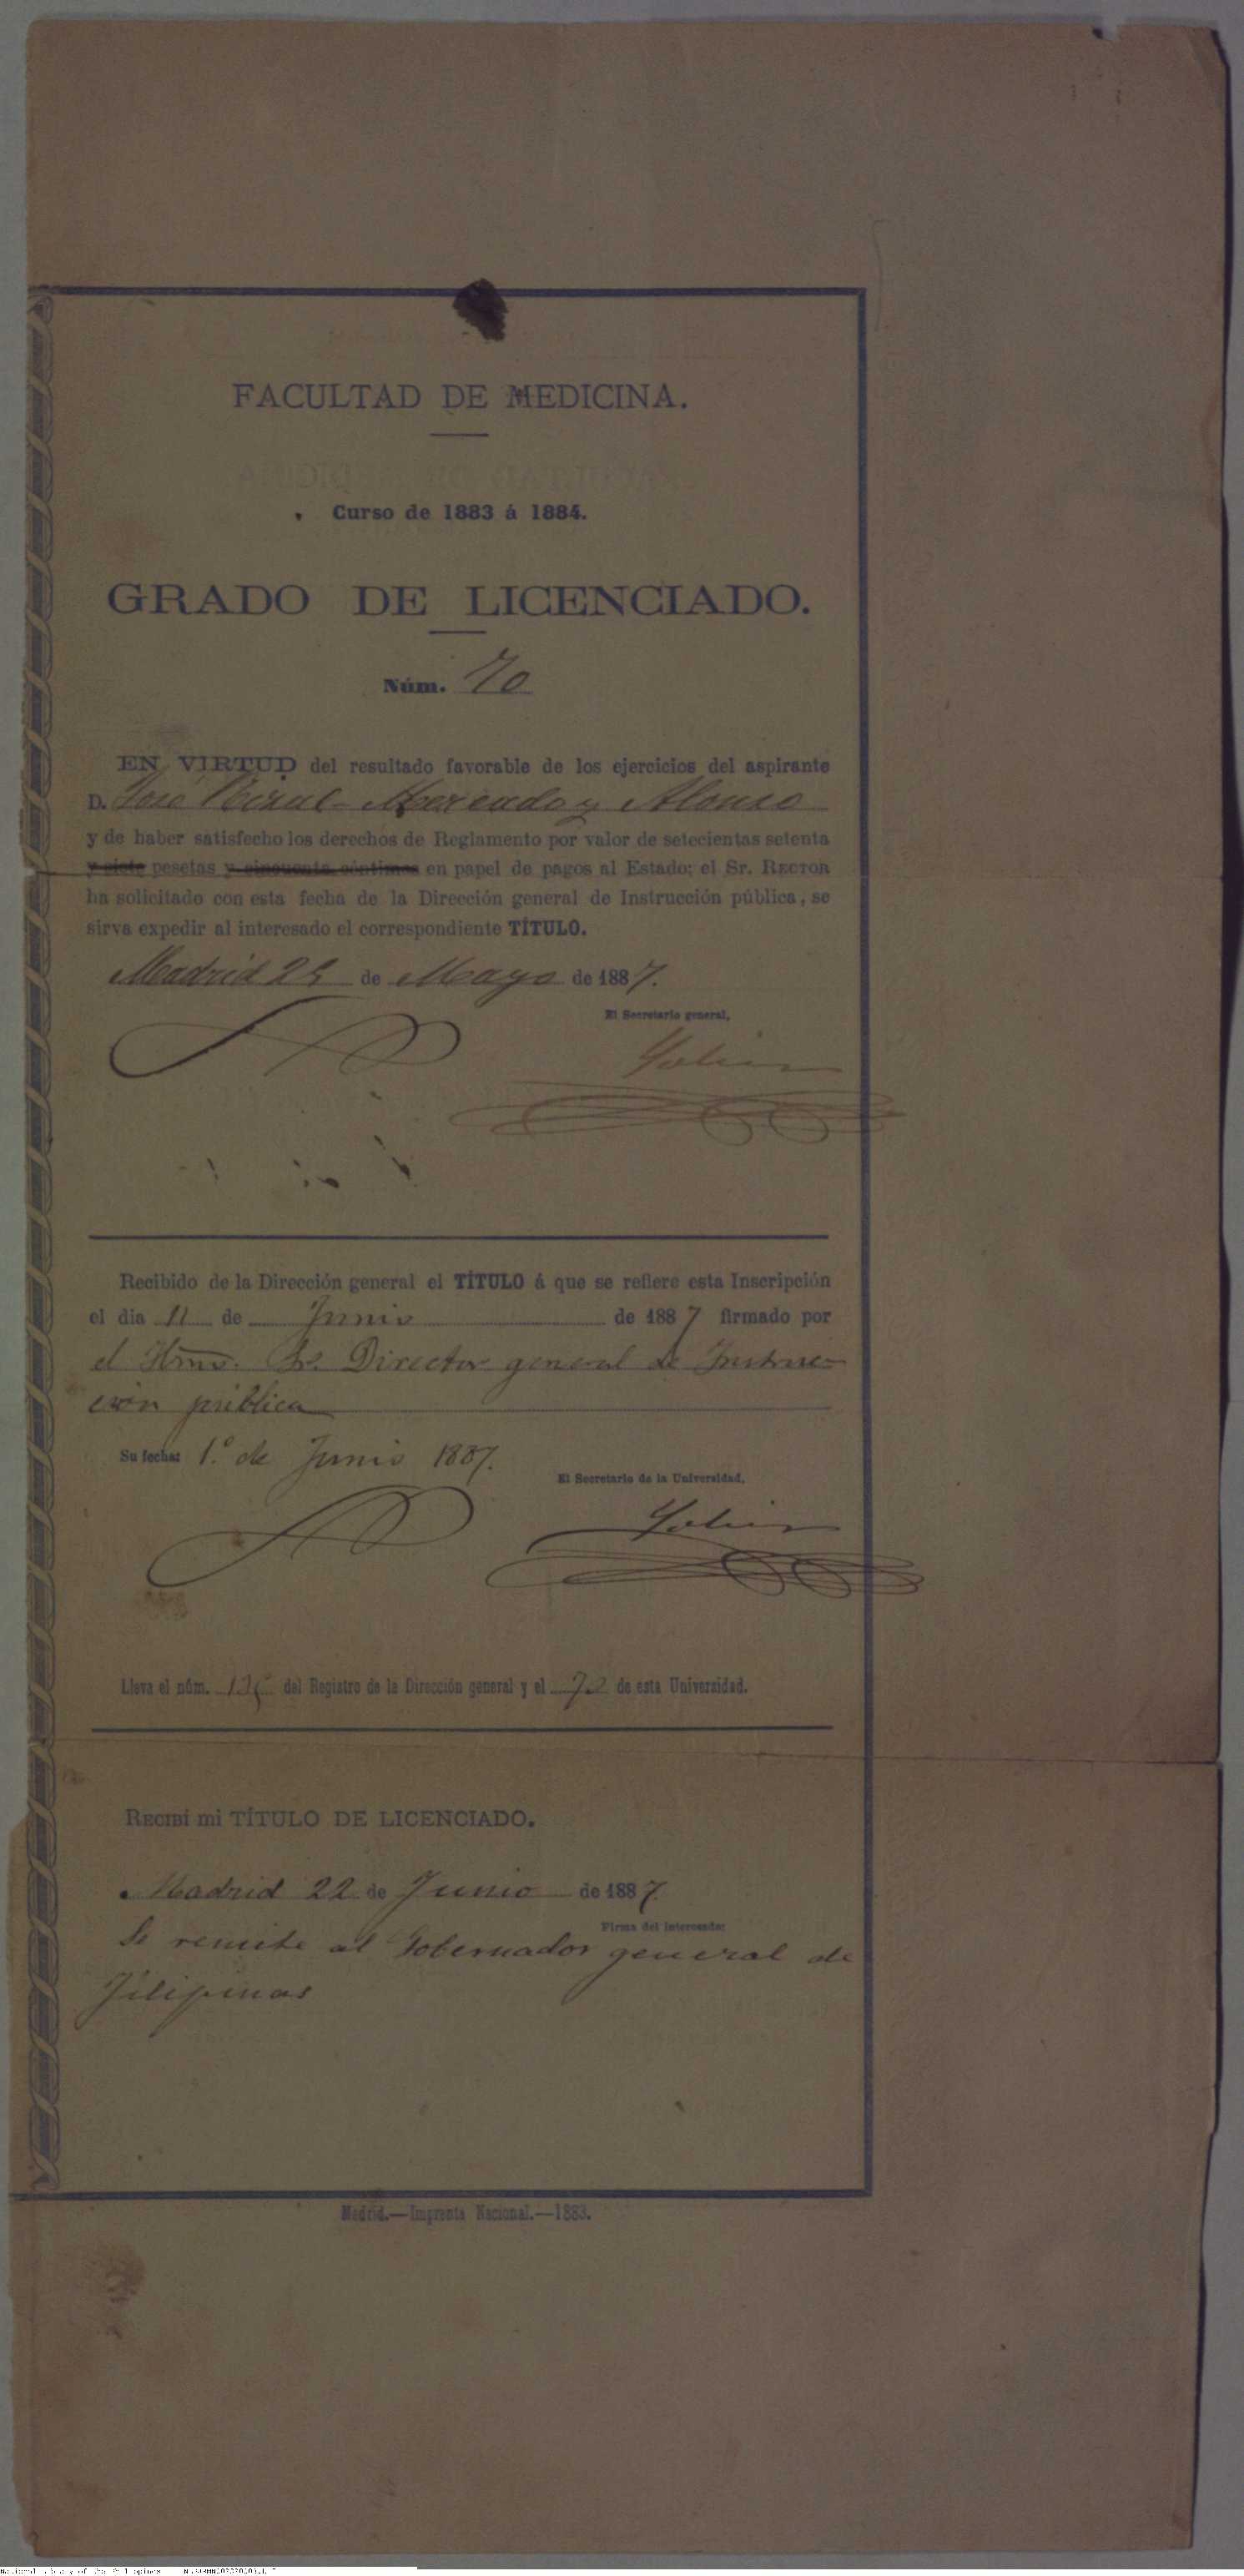 FACULTAD DE MEDICINA.
Curso de 1883 á 1884.
GRADO DE LICENCIADO.
Núm. 70
EN VIRTUD del resultado favorable de los ejercicios del aspirante
D. José Rizal Mercado y Alonso
y de haber satisfecho los derechos de Reglamento por valor de setecientas setenta
y siete pesetas y cincuenta céntimos en papel de pagos al Estado; el Sr. RECTOR
ha solicitado con esta fecha de la Dirección general de Instrucción pública, se
sirva expedir al interesado el correspondiente TÍTULO.
Madrid de Mayo de 1887.
El Secretario general,
Recibido de la Dirección general el TÍTULO á que se refiere esta Inscripción
el dia 11 de Junio de 1887 firmado por
el Sr. Director general de Instruc-
ción pública
Su fecha: 1.º de Junio 1887.
El Secretario de la Universidad,
Lleva el núm. del Registro de la Dirección general y el de esta Universidad.
RECIBÍ mi TÍTULO DE LICENCIADO.
Madrid 22 de Junio de 1887.
Firma del interesado:
Se remite al Gobernador general de
Filipinas
Madrid.—Imprenta Nacional.—1883.
National Library of the Philippines